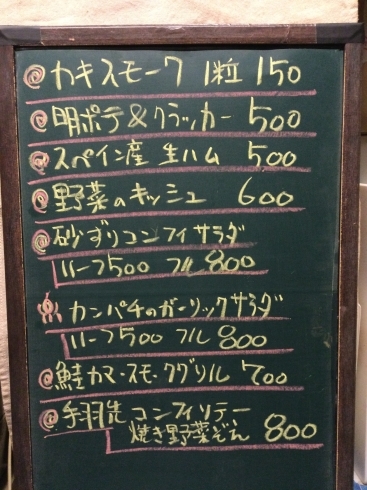 カキスモーク 1粒 150
明ポテ&クラッカー 500
スペイン産 生ハム 500
野菜のキッシュ 600
砂ずりコンフィサラダ
ハーフ500 フル 800
カンパチのガーリックサラダ
ハーフ500 フル 800
鮭カマ・スモークグリル 700
手羽先 コンフィリテー
焼き野菜ぞえ 800